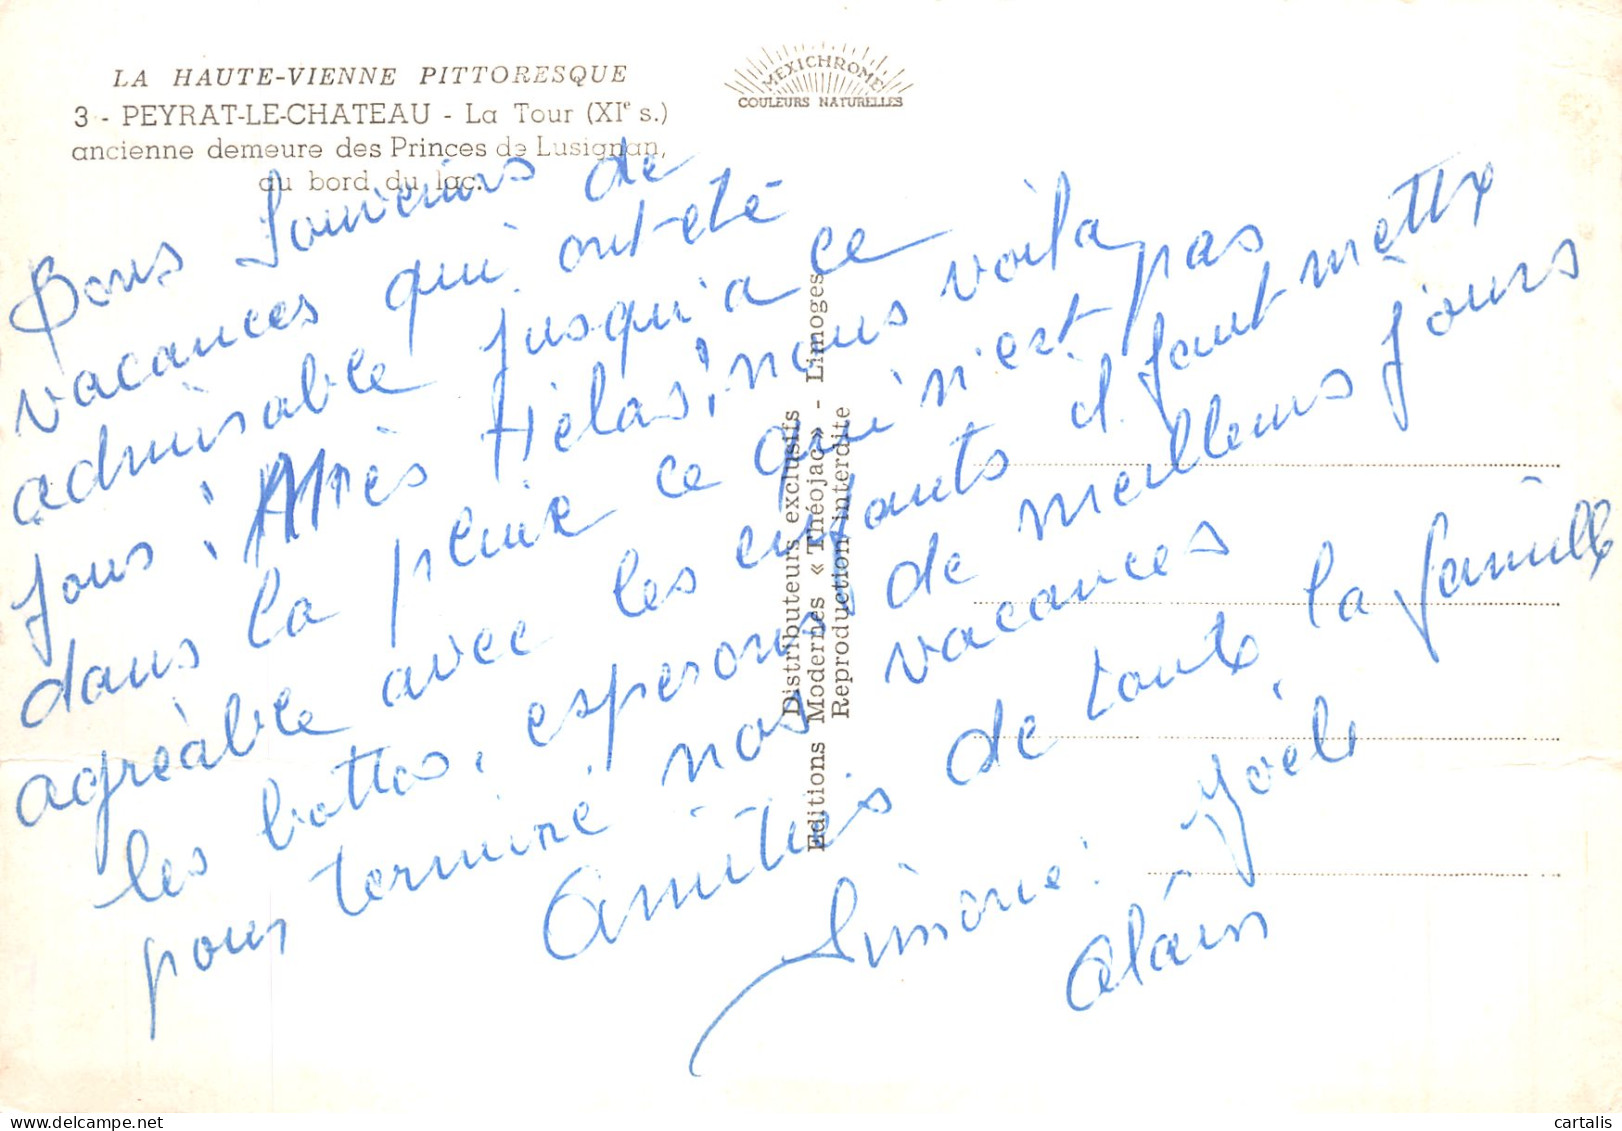 LA HAUTE-VIENNE PITTORESQUE
3 - PEYRAT-LE-CHATEAU - La Tour (XIe s.)
ancienne demeure des Princes de Lusignan,
au bord du lac.
MEXICHROME
COULEURS NATURELLES
Bons Souvenirs de
vacances qui ont été
admirable jusqu'a ce
jour : Hélas, nous voila
dans la pluie ce qui n'est pas
agréable avec les enfants il faut mettre
les bottes, esperons de meilleurs jours
pour terminé nos vacances
Amitiés de toute la famille
Simone. Joële
Alain
Distributeurs exclusifs
Editions Modernes « Théojac » - Limoges
Reproduction interdite
cartalis